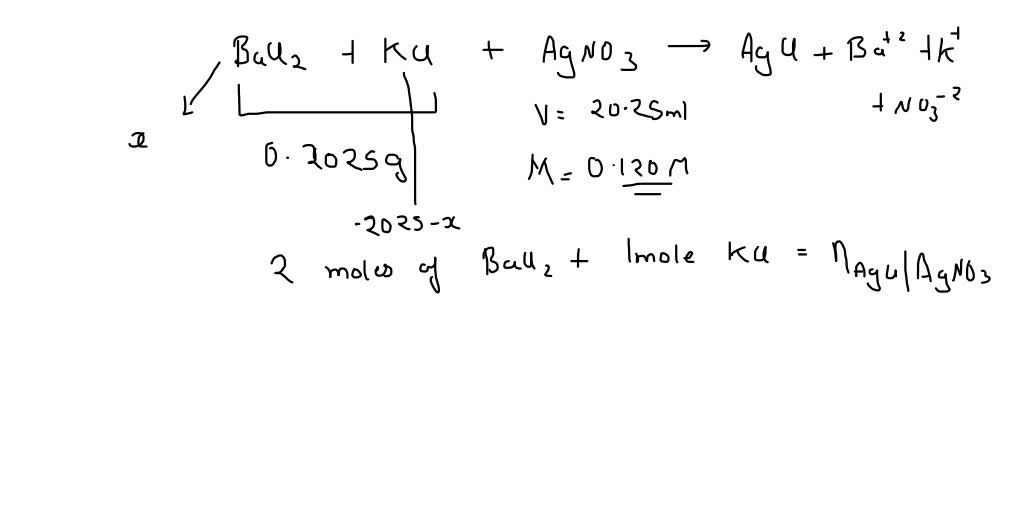 BaCl2 + KCl + AgNO3 → AgCl + Ba+2 + K+
+ NO3-2
V= 20.25ml
x
0.2025g
M= 0.120M
.2025-x
2 moles of BaCl2 + 1mole KCl = nAgCl/AgNO3